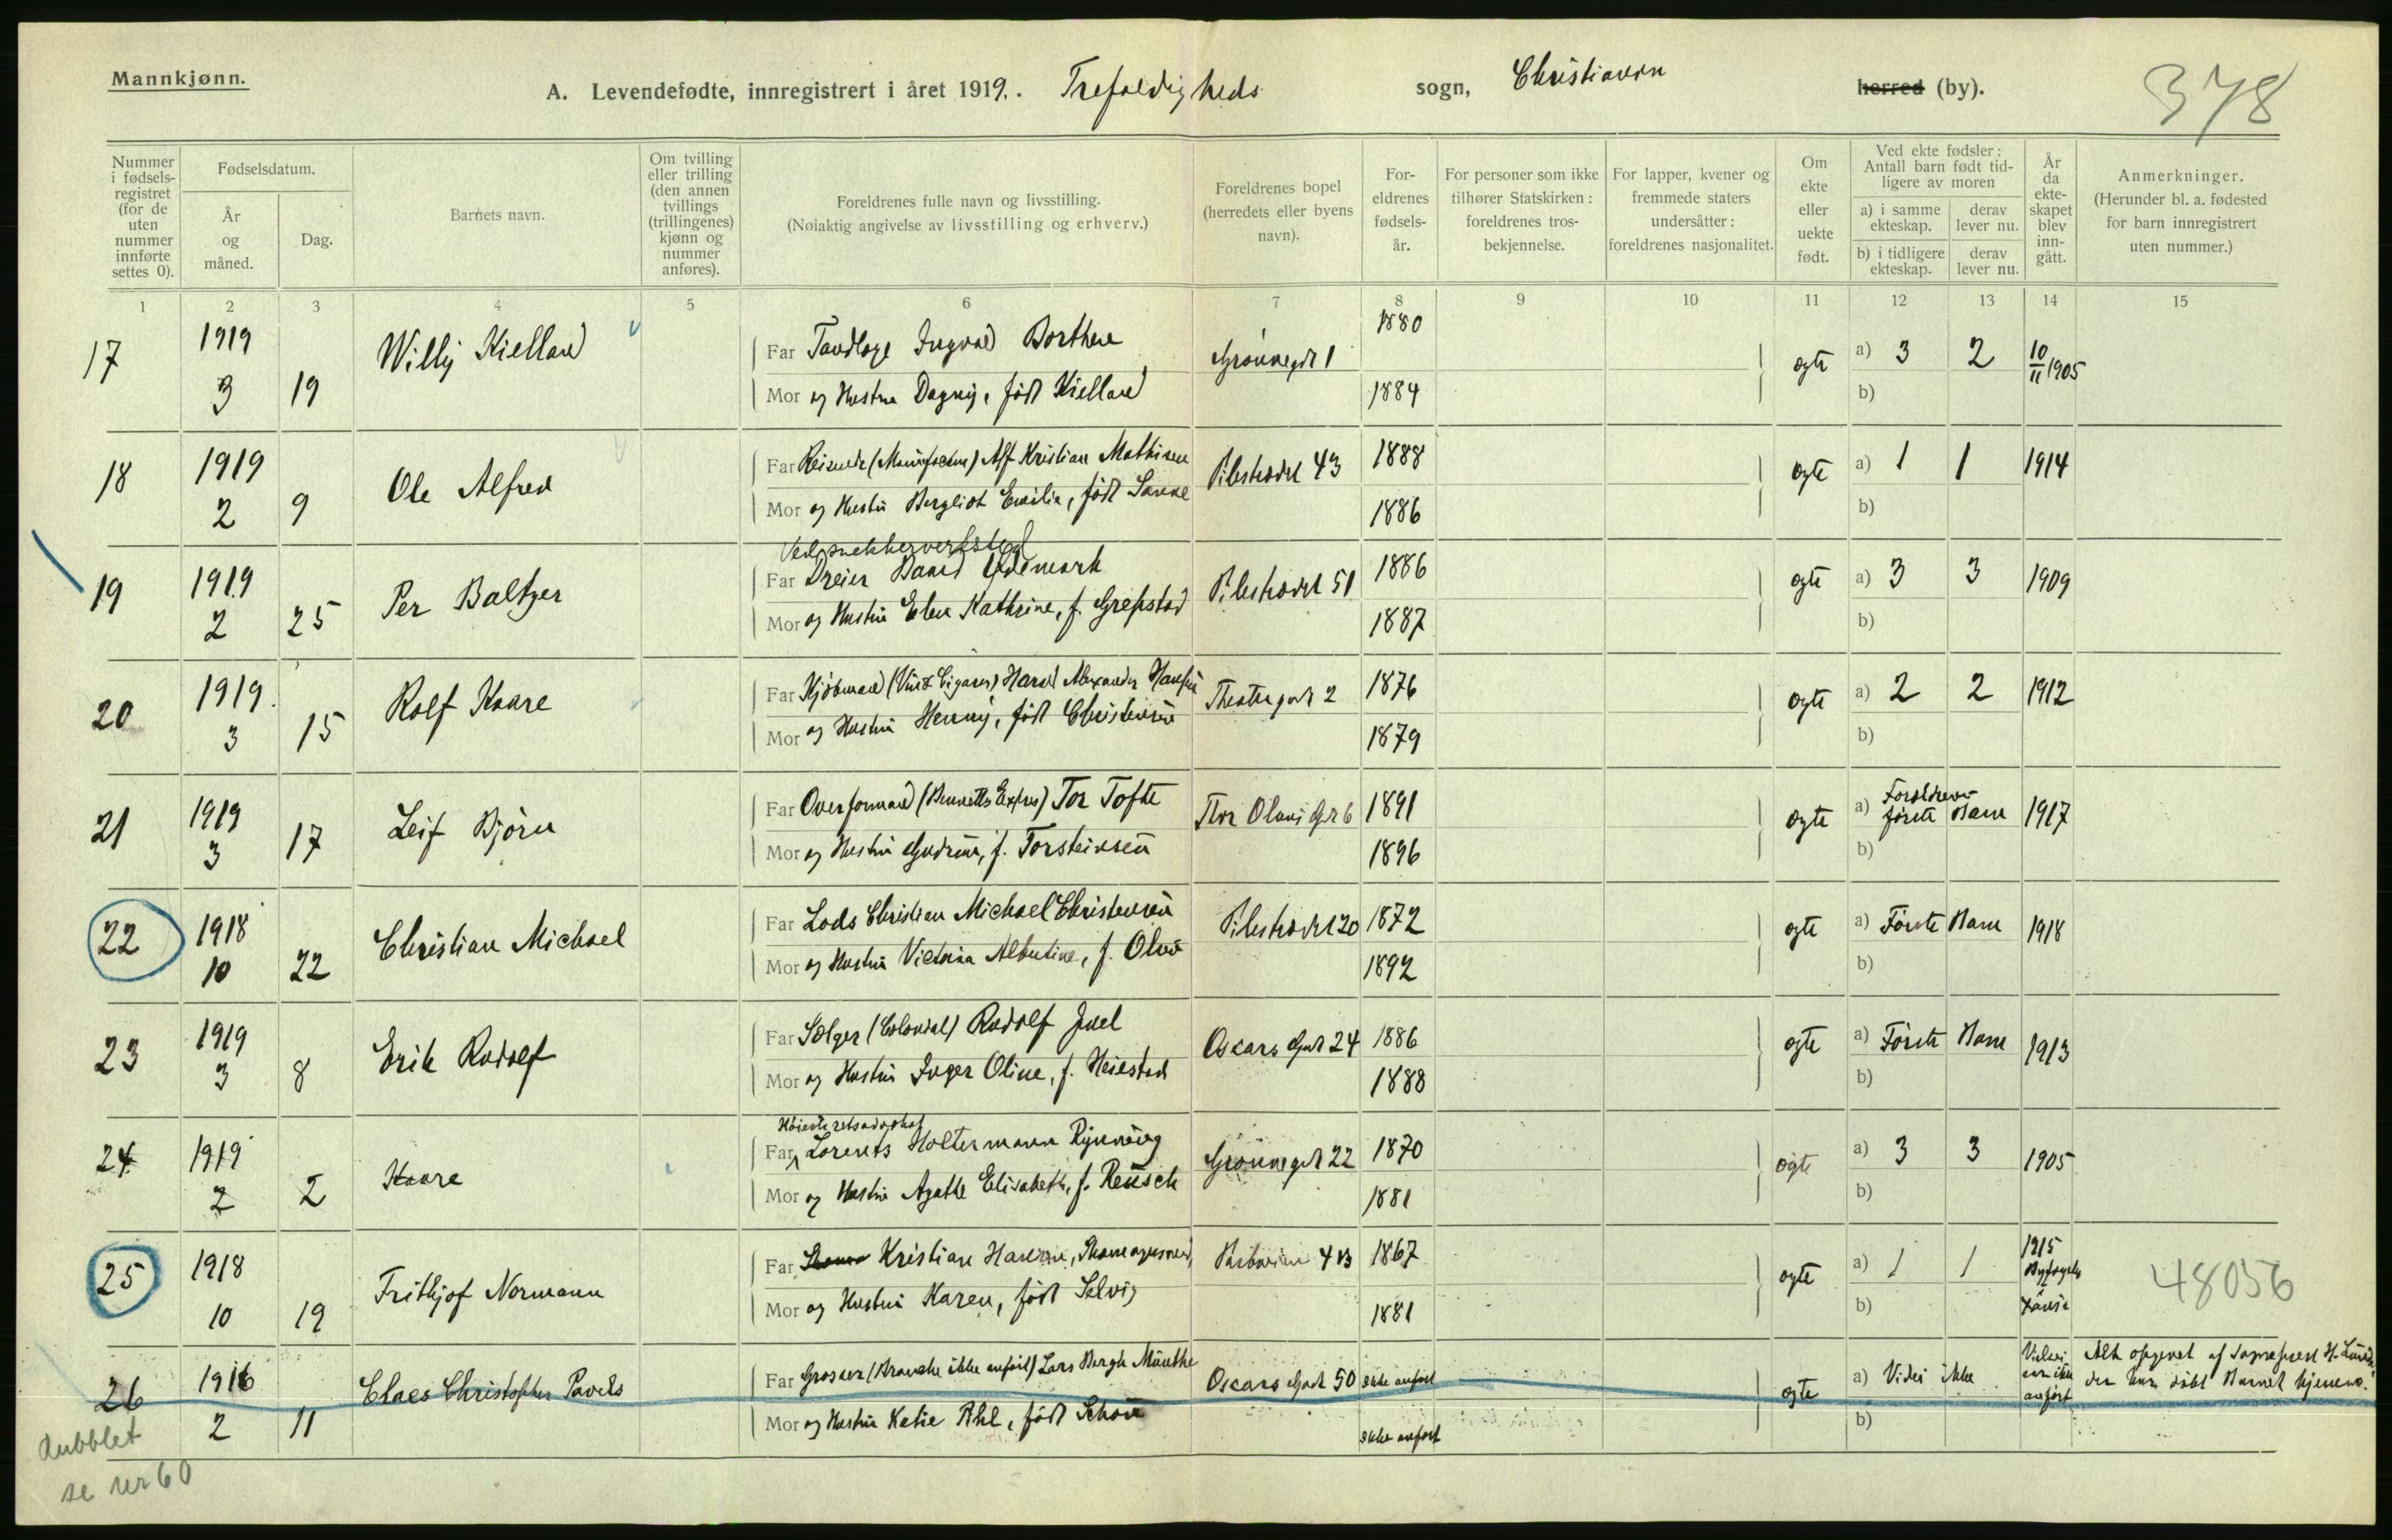 Mannkjønn.
A. Levendefødte, innregistrert i året 1919. Trefoldigheds sogn, Christiania herred (by).
378
Nummer i fødselsregistret (for de uten nummer innførte settes 0).
Fødselsdatum.
År og måned.
Dag.
Barnets navn.
Om tvilling eller trilling (den annen tvillings (trillingenes) kjønn og nummer anføres).
Foreldrenes fulle navn og livsstilling.
(Nøiaktig angivelse av livsstilling og erhverv.)
Foreldrenes bopel (herredets eller byens navn).
Foreldrenes fødselsår.
For personer som ikke tilhører Statskirken: foreldrenes trosbekjennelse.
For lapper, kvener og fremmede staters undersåtter: foreldrenes nasjonalitet.
Om ekte eller uekte født.
Ved ekte fødsler: Antall barn født tidligere av moren
a) i samme ekteskap. derav lever nu.
b) i tidligere ekteskap. derav lever nu.
År da ekteskapet blev inngått.
Anmerkninger.
(Herunder bl. a. fødested for barn innregistrert uten nummer.)
1 2 3 4 5 6 7 8 9 10 11 12 13 14 15
17 1919 3 19 Willy Kielland
Far Tandlæge Ingvald Borthen Grønnegt 1 1880 ægte a) 3 2 10/11 1905
Mor og Hustru Dagny, född Kielland 1884 b)
18 1919 2 9 Ole Alfred
Far Reisende (Manufactur) Alf Kristian Mathisen Pilestrædet 43 1888 ægte a) 1 1 1914
Mor og Hustru Bergliot Emilie, född 1886 b)
19 1919 2 25 Per Baltzer
Ved snekkerverksted
Far Dreier Baard Ødemark Pilestrædet 51 1886 ægte a) 3 3 1909
Mor og Hustru Elen Kathrine, f. Grefstad 1887 b)
20 1919 3 15 Rolf Kaare
Far Kjöbmand (Vin & Cigarer) Harald Alexander Hansen Theatergat 2 1876 ægte a) 2 2 1912
Mor og Hustru Henny, född Christensen 1879 b)
21 1919 3 17 Leif Björn
Far Overformand (Bennetts Expres) Tor Tofte Thor Olsens Gt 6 1891 ægte a) Forældrenes förste Barn 1917
Mor og Hustru Gudrun, f. Torsteinsen 1896 b)
22 1918 10 22 Christian Michael
Far Lods Christian Michael Christensen Pilestrædet 20 1872 ægte a) Förste Barn 1918
Mor og Hustru Victoria Albertine, f. Olsen 1892 b)
23 1919 3 8 Erik Rudolf
Far Sælger (Colonial) Rudolf Juel Oscars Gat 24 1886 ægte a) Förste Barn 1913
Mor og Hustru Inger Oline, f. Heiestad 1888 b)
24 1919 2 2 Kaare
Höiesteretsadvokat
Far Lorents Holtermann Rynning Grønnegat 22 1870 ægte a) 3 3 1905
Mor og Hustru Agathe Elisabeth, f. Reusch 1881 b)
25 1918 10 19 Frithjof Normann
Far Kristian Hansen, Parkveien 4 B 1867 ægte a) 1 1 1915
Mor og Hustru Karen, född Selvig 1881 b)
48056
26 1916 2 11 Claes Christopher Pavels
Far Grosser (Branche ikke anfört) Lars Bergh Münthe Oscars Gade 50 ikke anfört ægte a) Vides ikke
Mor og Hustru Katie Ahl, född Schou ikke anfört b)
Alt opgivet af Sogneprest H. der har döbt Barnet hjemme.
dubblet
se nr 60